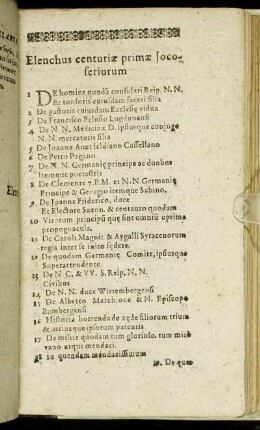 Elenchus centuriæ primæ Joco-
seriorum
1 DE homine quodā consulari Reip. N. N.
Et tonsoris cuiusdam faceti filia
2 De guber cuiusdam Ecclesię vidua
3 De Francisco Pelusio Lugdunensi
4 De N. N. Medicinæ D. ipsiusque conjuge
N N. mercatoris filia
5 De Joanne feldiano Cassellano
6 De Petro Pagano
7 De N. N. Germanię principe ac duobus
Itemque poetastris
8 De Clemente 7. P. M. et N. N Germanię
Principe & Georgio itemque Sabino,
9 De Joanne Friderico, duce
Et Electore Saxon. & centauro quodam
10 Virorum principū quę sint omniū optima
propugnacula.
11 De Caroli Magni & Aygalli Syracenorum
regis inter se inito fędere.
12 De quodam Germanię Comite, ipsiusque
Superattendente.
13 De N C. & VV. S. Reip. N. N.
Civibus
14 De N. N. duce Wirtembergensi
15 De Alberto Marchione & N. Episcopo
Bambergensi
16 Historia horrenda de cęde filiorum trium
& utriusque ipsorum parentis
17 De milite quodam tum glorioso, tum mire
vano atque mendaci.
18 in quendam mendacissimum
19. De quo